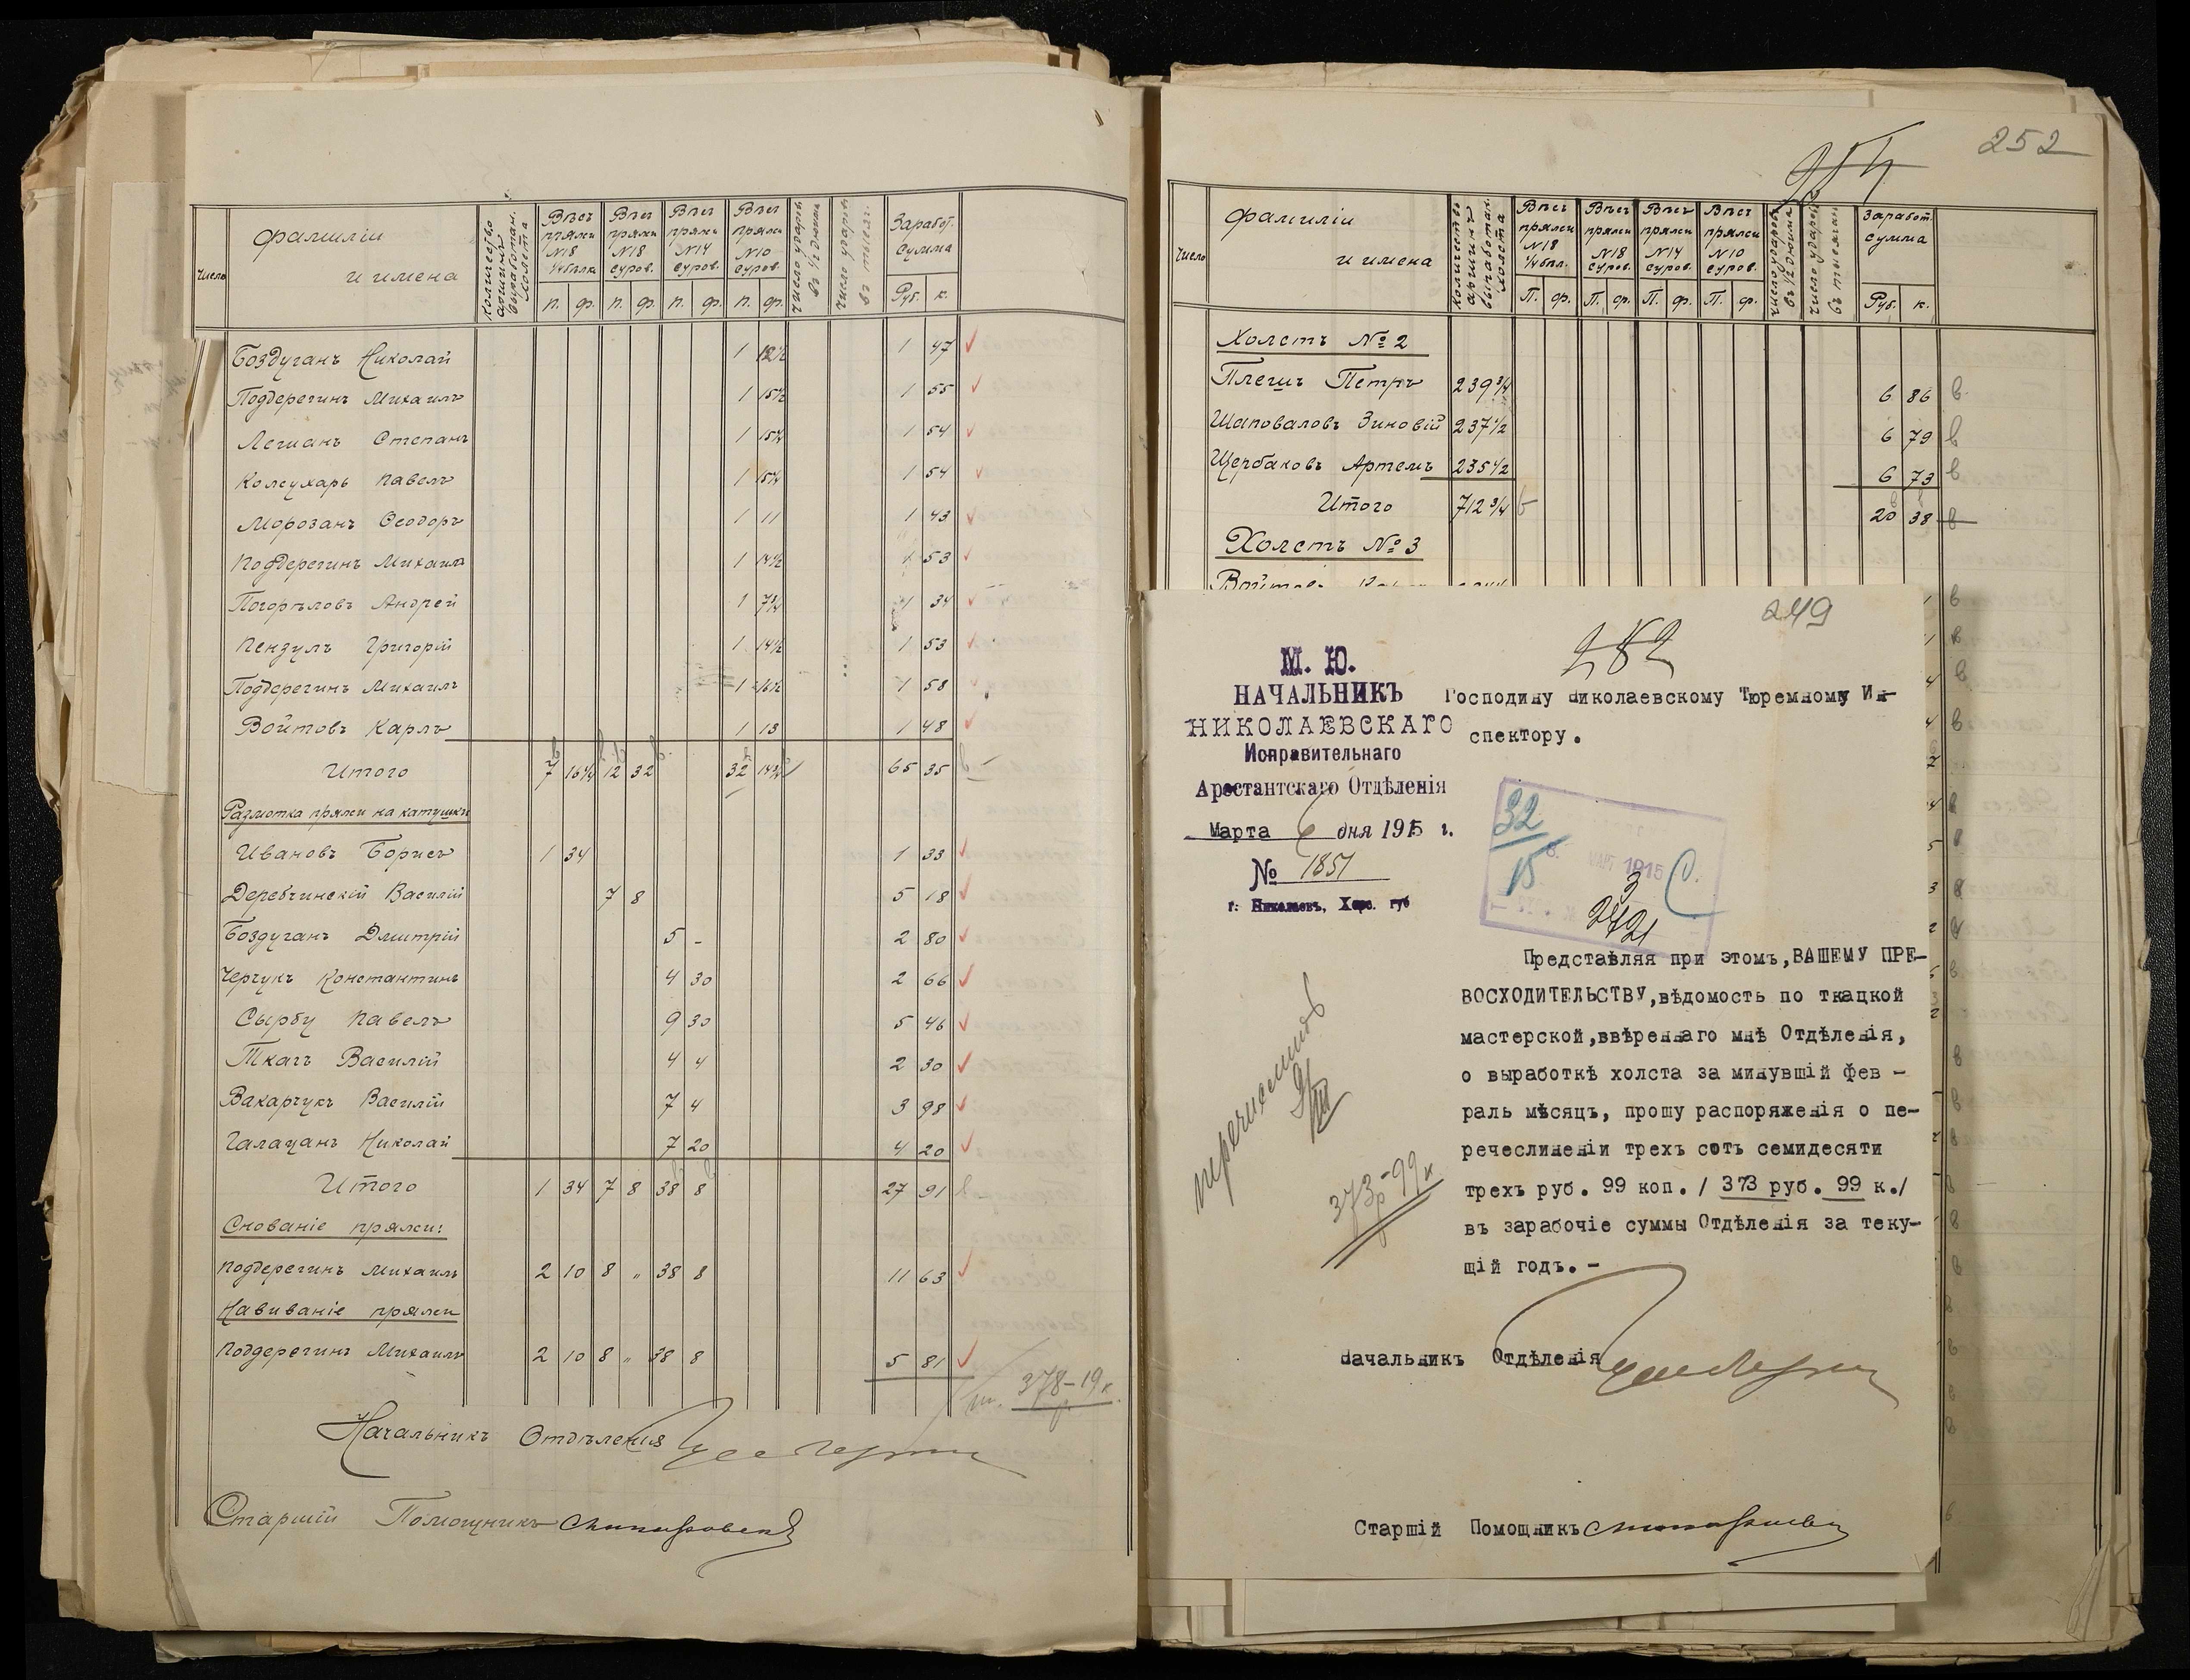 Число
Фамиліи
и имена
Количество аршинъ выработан. холста
Вѣсъ пряжи №18 ¼ бѣлая
Вѣсъ пряжи №18 суров.
Вѣсъ пряжи №14 суров.
Вѣсъ пряжи №10 суров.
Число ударовъ въ ½ дюйма
Число ударовъ въ тысяч.
Заработ. сумма
п. ф. п. ф. п. ф. п. ф. Руб. к.
Боздуганъ Николай 1 1 47
Поддерегинъ Михаилъ 1 15½ 1 55
Степанъ 1 15¼ 1 54
Павелъ 1 15¼ 1 54
Морозанъ Ѳеодоръ 1 11 1 43
Поддерегинъ Михаилъ 1 14½ 1 53
Погорѣловъ Андрей 1 7¾ 1 34
Пензулъ Григорій 1 14½ 1 53
Поддерегинъ Михаилъ 1 16½ 1 58
Войтовъ Карлъ 1 13 1 48
Итого 7 16¼ 12 32 32 14¾ 65 35
Размотка пряжи на катушки
Ивановъ Борисъ 1 34 1 33
Деревчинскій Василій 7 8 5 18
Боздуганъ Дмитрій 5 - 2 80
Черчукъ Константинъ 4 30 2 66
Сырбу Павелъ 9 30 5 46
Ткачъ Василій 4 4 2 30
Вакарчукъ Василій 7 4 3 98
Галацанъ Николай 7 20 4 20
Итого 1 34 7 8 38 8 27 91
Снованіе пряжи:
Поддерегинъ Михаилъ 2 10 8 " 38 8 11 63
Навиваніе пряжи
Поддерегинъ Михаилъ 2 10 8 " 38 8 5 81
378-19к.
Начальникъ Отдѣленія
Старшій Помощникъ
252
Число
Фамиліи
и имена
Количество аршинъ выработан. холста
Вѣсъ пряжи №18 ¼ бѣл.
Вѣсъ пряжи №18 суров.
Вѣсъ пряжи №14 суров.
Вѣсъ пряжи №10 суров.
Число ударовъ въ ½ дюйма
Число ударовъ въ тысячах
Заработ. сумма
П. ф. П. ф. П. ф. П. ф. Руб. к.
Холстъ № 2
Плегиъ Петръ 239¾ 6 86
Шаповаловъ Зиновій 237½ 6 79
Щербаковъ Артемъ 235½ 6 73
Итого 712¾ 20 38
Холстъ № 3
249
282
М. Ю.
НАЧАЛЬНИКЪ
НИКОЛАЕВСКАГО
Исправительнаго
Арестантскаго Отдѣленія
Марта 6 дня 1915 г.
№ 1851
г. Николаевъ, Херс. губ
Господину Николаевскому Тюремному Ин-
спектору.
32
15
МАР 1915
С.
3
2421
Представляя при этомъ, ВАШЕМУ ПРЕ-
ВОСХОДИТЕЛЬСТВУ, вѣдомость по ткацкой
мастерской, ввѣреннаго мнѣ Отдѣленія,
о выработкѣ холста за минувшій фев -
раль мѣсяцъ, прошу распоряженія о пе-
речеслиненіи трехъ сотъ семидесяти
трехъ руб. 99 коп. / 373 руб. 99 к./
въ зарабочіе суммы Отдѣленія за теку-
щій годъ. -
9/III
373р-99к
Начальникъ Отдѣленія
Старшій Помощникъ